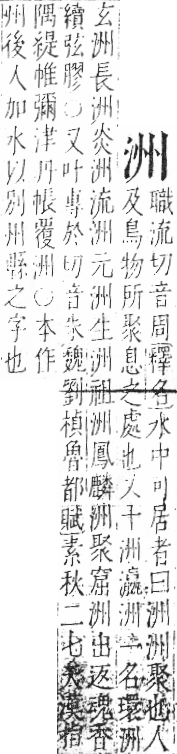 洲
職流切音周釋名水中可居者曰洲洲聚也人
及鳥物所聚息之處也又十洲瀛洲一名環洲
玄洲長洲炎洲流洲元洲生洲祖洲鳳麟洲聚窟洲出返魂香
續弦膠○又叶專於切音朱魏劉楨魯都賦素秋二七天漢指
隅禔帷彌津丹帳覆洲○本作
州後人加水以別州縣之字也